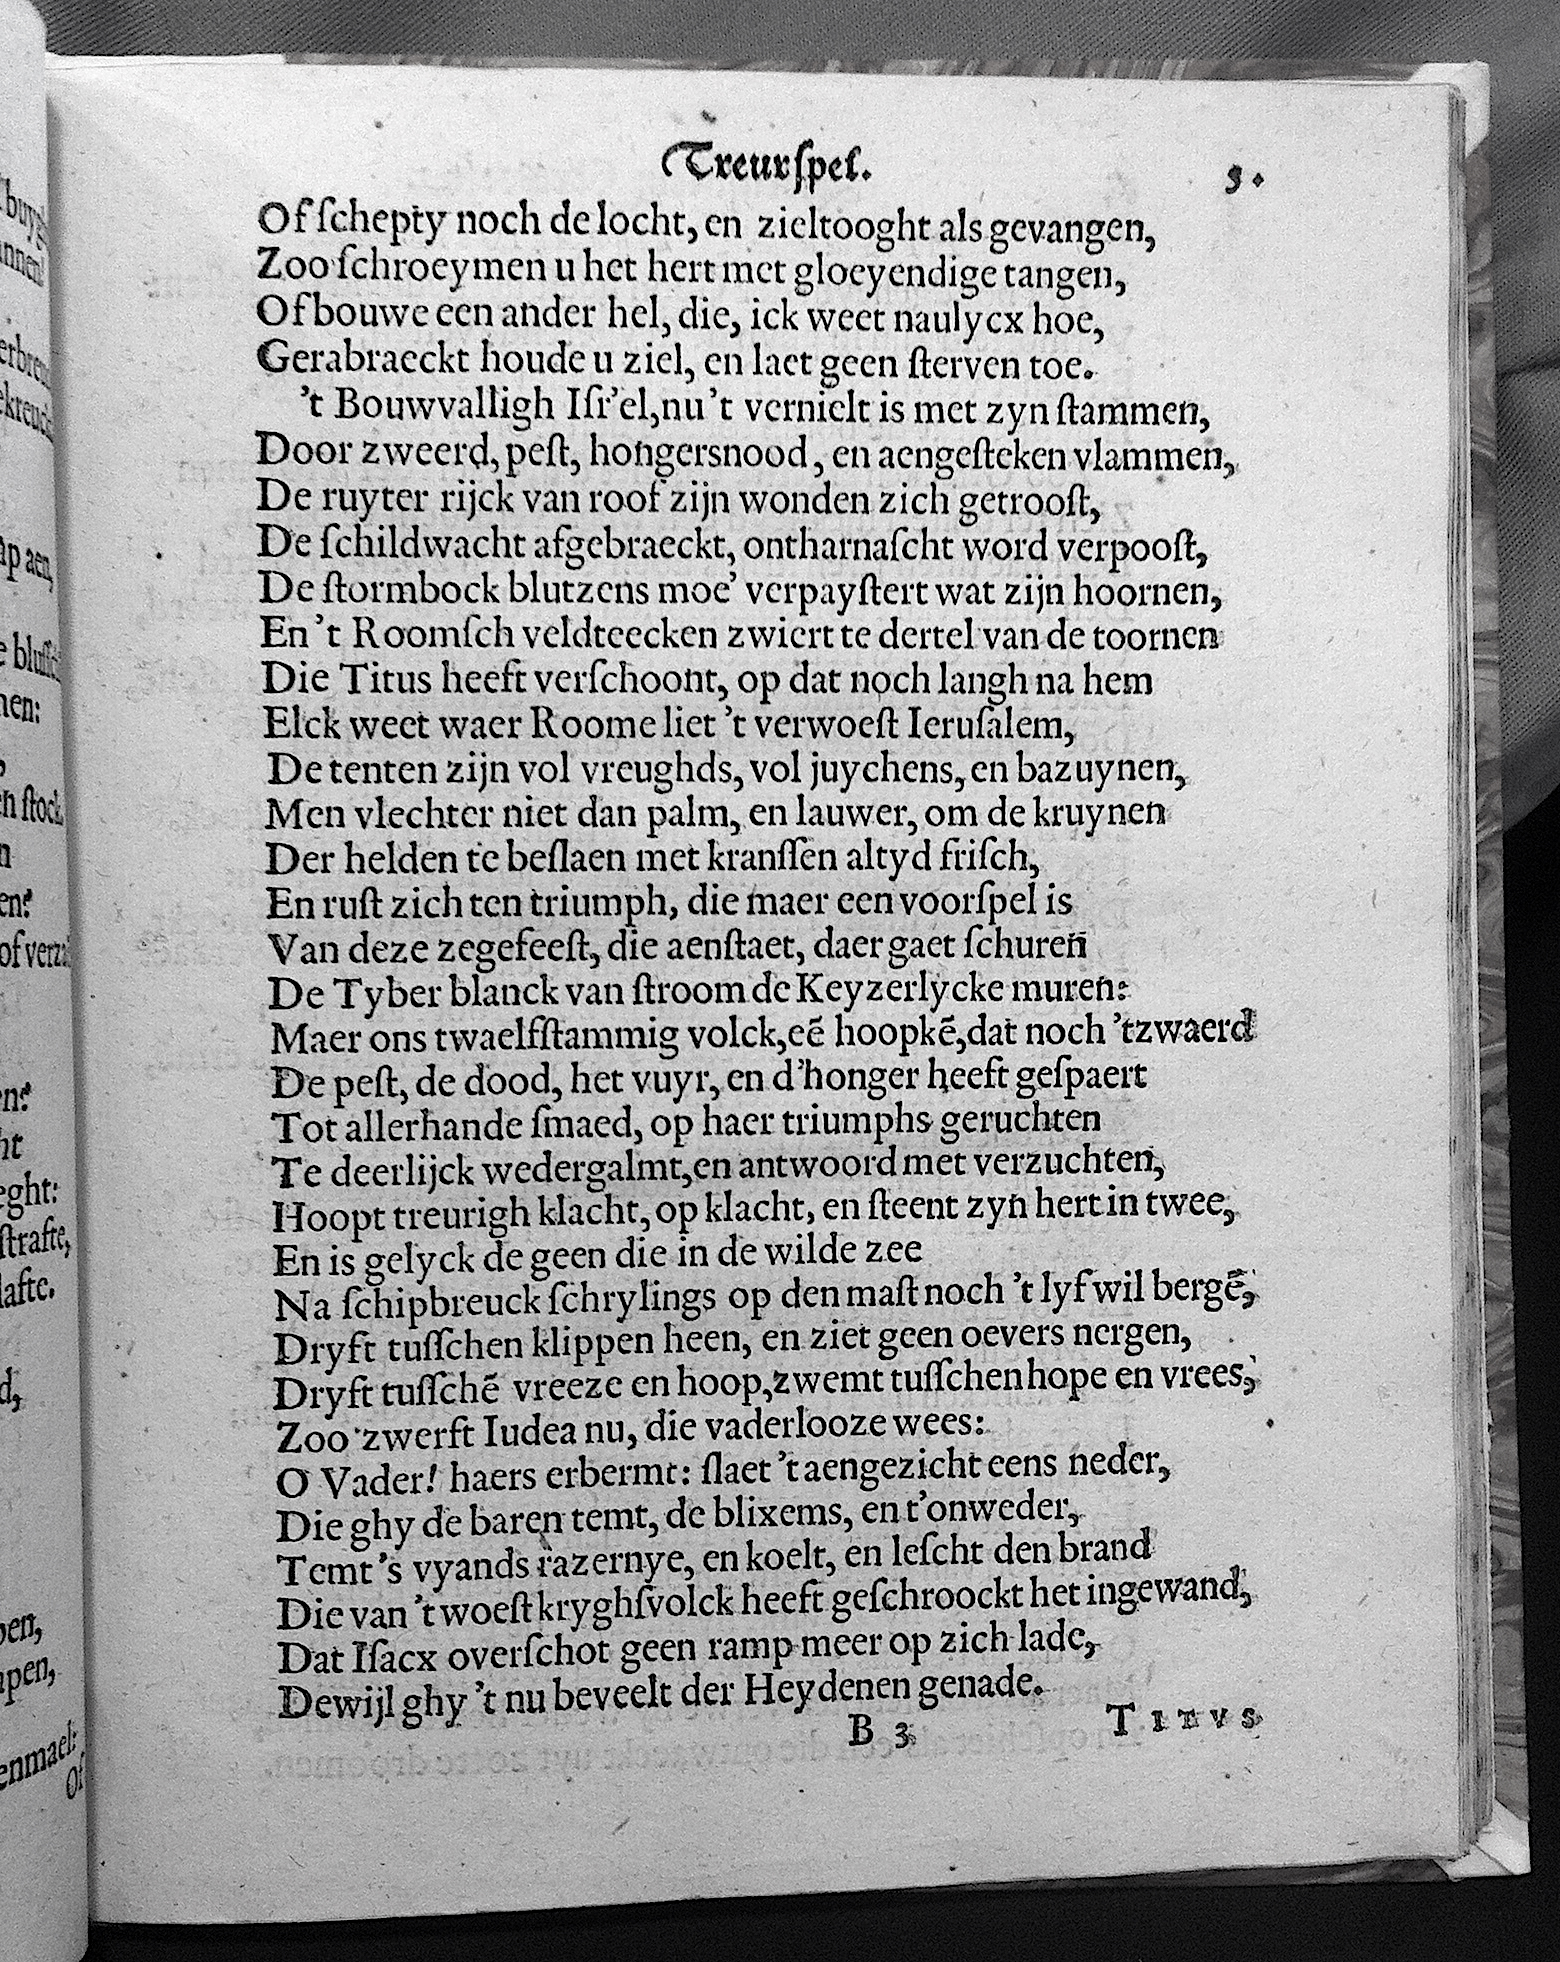 Treurſpel.
5.
Of ſchepty noch de locht, en zieltooght als gevangen,
Zoo ſchroeymen u het hert met gloeyendige tangen,
Of bouwe een ander hel, die, ick weet naulycx hoe,
Gerabraeckt houde u ziel, en laet geen ſterven toe.
't Bouwvalligh Iſr'el, nu 't vernielt is met zyn ſtammen,
Door zweerd, peſt, hongersnood, en aengeſteken vlammen,
De ruyter rijck van roof zijn wonden zich getrooſt,
De ſchildwacht afgebraeckt, ontharnaſcht word verpooſt,
De ſtormbock blutzens moe' verpayſtert wat zijn hoornen,
En 't Roomſch veldteecken zwiert te dertel van de toornen
Die Titus heeft verſchoont, op dat noch langh na hem
Elck weet waer Roome liet 't verwoeſt Ieruſalem,
De tenten zijn vol vreughds, vol juychens, en bazuynen,
Men vlechter niet dan palm, en lauwer, om de kruynen
Der helden te beſlaen met kranſſen altyd friſch,
En ruſt zich ten triumph, die maer een voorſpel is
Van deze zegefeeſt, die aenſtaet, daer gaet ſchuren
De Tyber blanck van ſtroom de Keyzerlycke muren:
Maer ons twaelfſtammig volck, eẽ hoopkẽ, dat noch 't zwaerd
De peſt, de dood, het vuyr, en d'honger heeft geſpaert
Tot allerhande ſmaed, op haer triumphs geruchten
Te deerlijck wedergalmt, en antwoord met verzuchten,
Hoopt treurigh klacht, op klacht, en ſteent zyn hert in twee,
En is gelyck de geen die in de wilde zee
Na ſchipbreuck ſchrylings op den maſt noch 't lyf wil bergẽ,
Dryft tuſſchen klippen heen, en ziet geen oevers nergen,
Dryft tuſſchẽ vreeze en hoop, zwemt tuſſchen hope en vrees,
Zoo zwerft Iudea nu, die vaderlooze wees:
O Vader! haers erbermt: ſlaet 't aengezicht eens neder,
Die ghy de baren temt, de blixems, en t'onweder,
Temt 's vyands razernye, en koelt, en leſcht den brand
Die van 't woeſt kryghſvolck heeft geſchroockt het ingewand,
Dat Iſacx overſchot geen ramp meer op zich lade,
Dewijl ghy 't nu beveelt der Heydenen genade.
B 3
TITVS